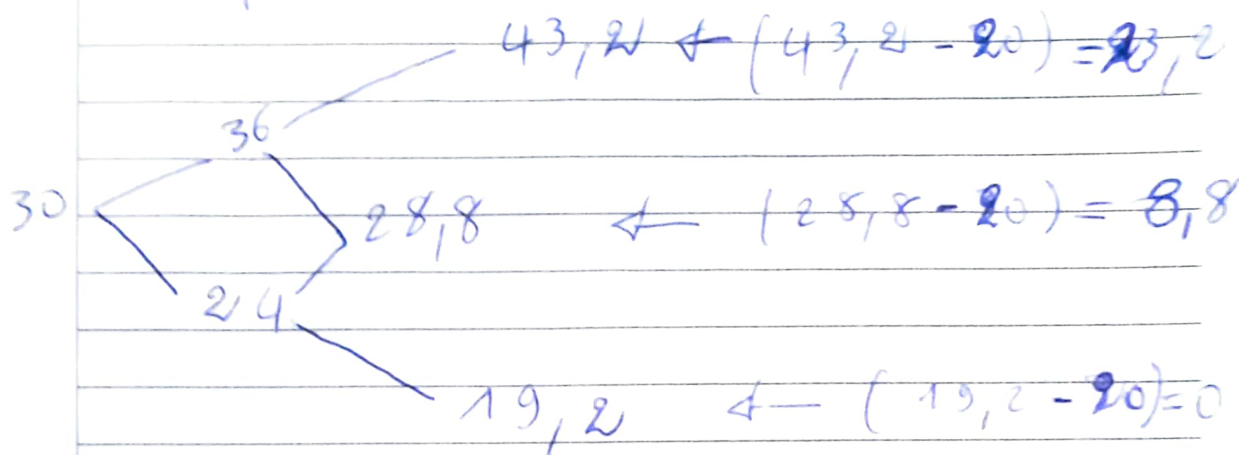 43,2 ← (43,2 - 20) = 23,2
36
30
28,8 ← (28,8 - 20) = 8,8
24
19,2 ← (19,2 - 20) = 0